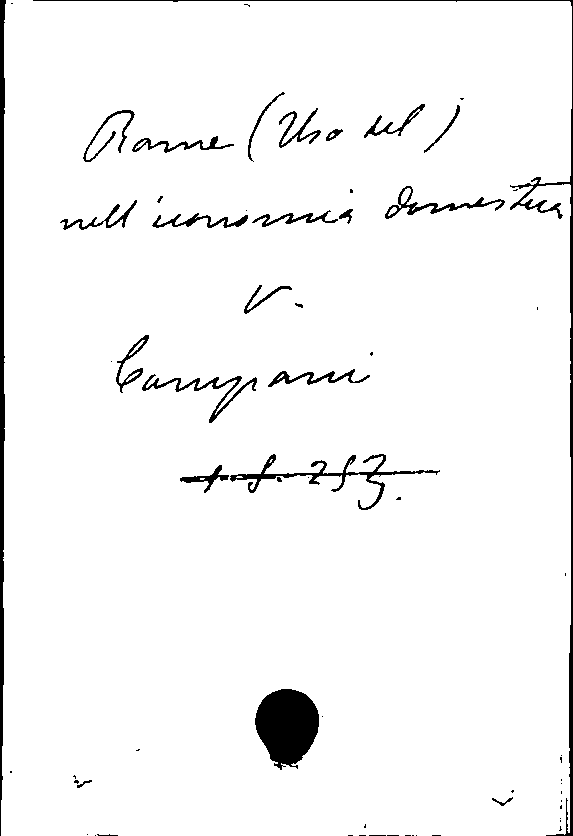 Rame (Uso del)
nell'economia domestica
V.
Campani